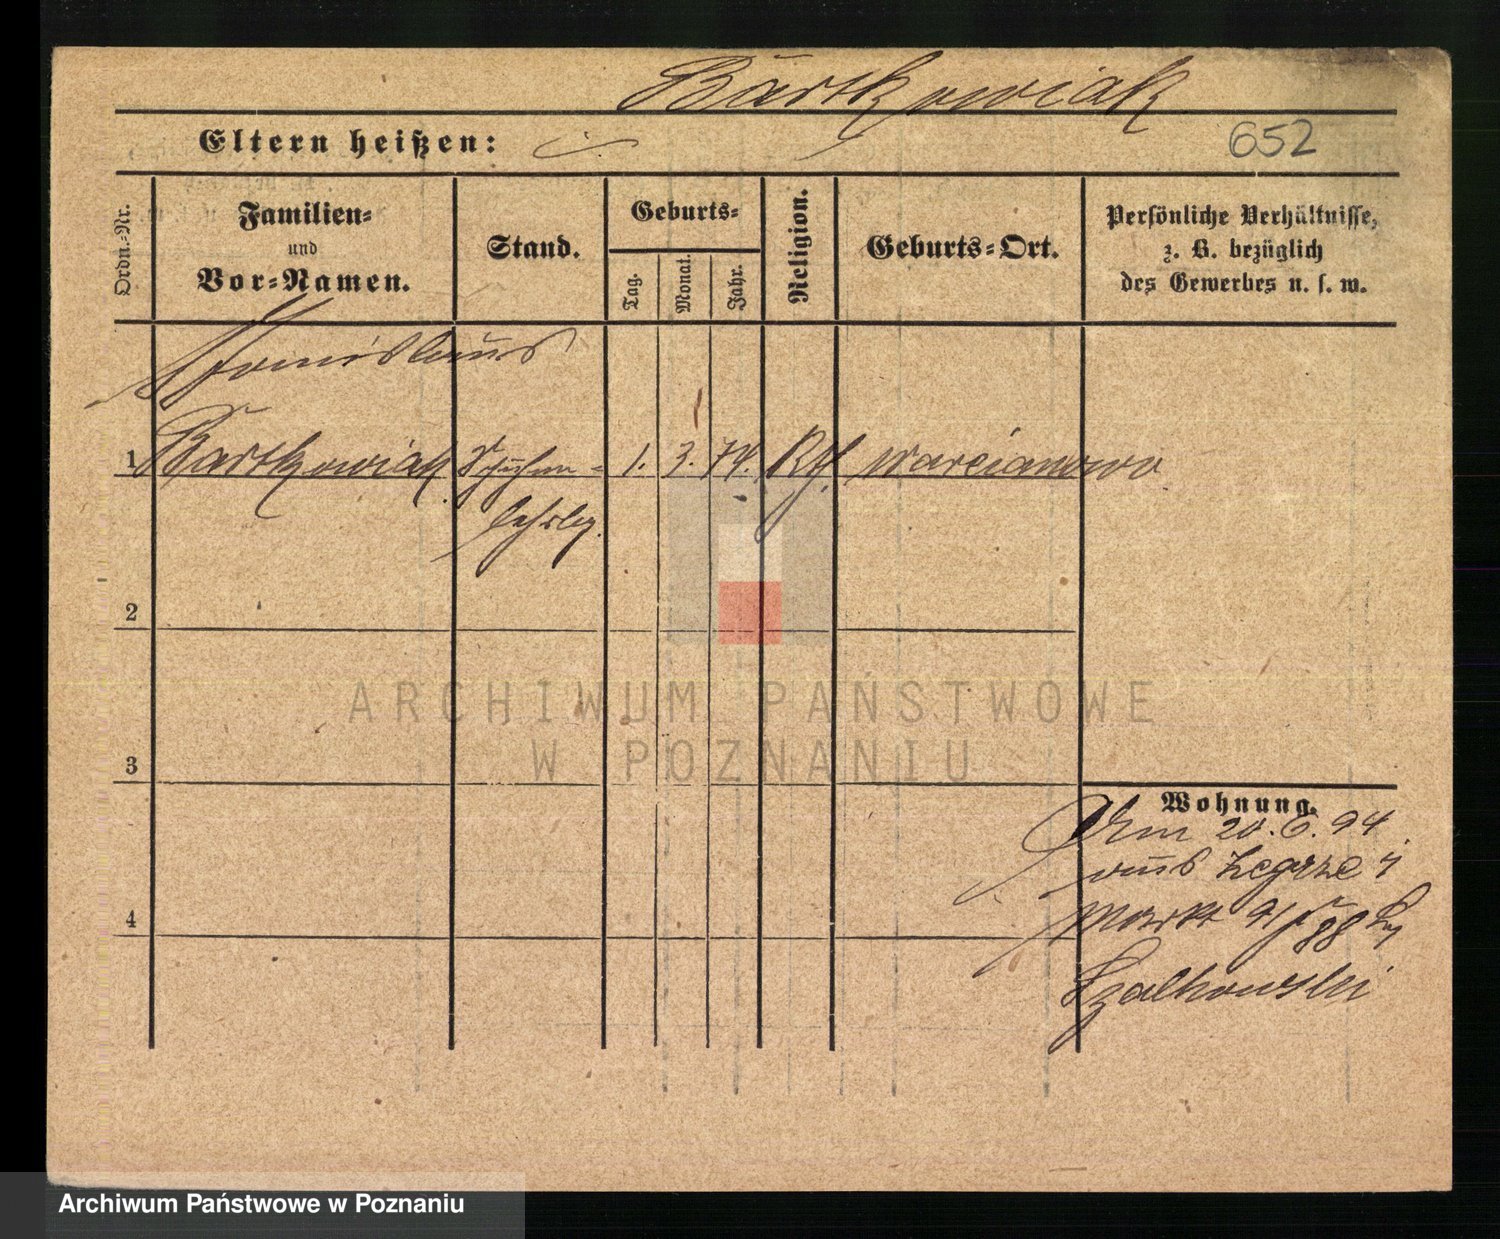 Bartkowiak
Eltern heißen:
652
Ordn.-Nr.
Familien-
und
Vor-Namen.
Stand.
Geburts-
Tag.
Monat.
Jahr.
Religion.
Geburts-Ort.
Persönliche Verhältnisse,
z. B. bezüglich
des Gewerbes u. s. w.
Stanislaus
1 Bartkowiak 1. 3. 74. Kth. Marcianowo
2
3
4
Wohnung.
Am 20. 6. 94
aus Zegrze
Markt 88
Szalkowski
ARCHIWUM PAŃSTWOWE
W POZNANIU
Archiwum Państwowe w Poznaniu